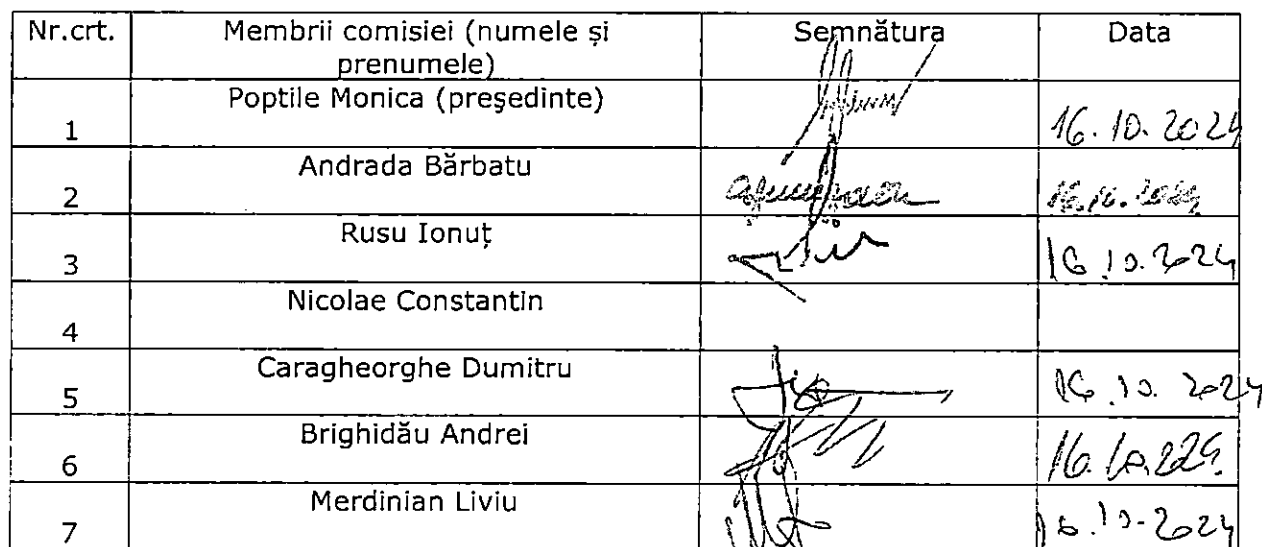 Nr.crt. Membrii comisiei (numele și Semnătura Data
prenumele)
Poptile Monica (preşedinte)
1 16.10.2024
Andrada Bărbatu
2
Rusu Ionuț
3 16.10.2024
Nicolae Constantin
4
Caragheorghe Dumitru
5 16.10.2024
Brighidău Andrei
6
Merdinian Liviu
7 16.10.2024